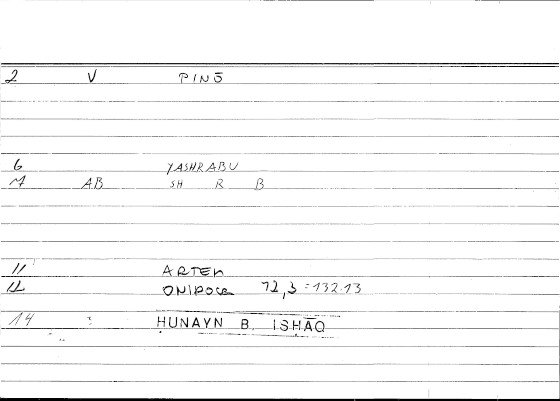 2 V PINŌ
6 YASHRABU
7 AB SH R B
11 ARTEM
12 ONIROCR 72,3 = 132.13
14 ḤUNAYN B. ISḤĀQ